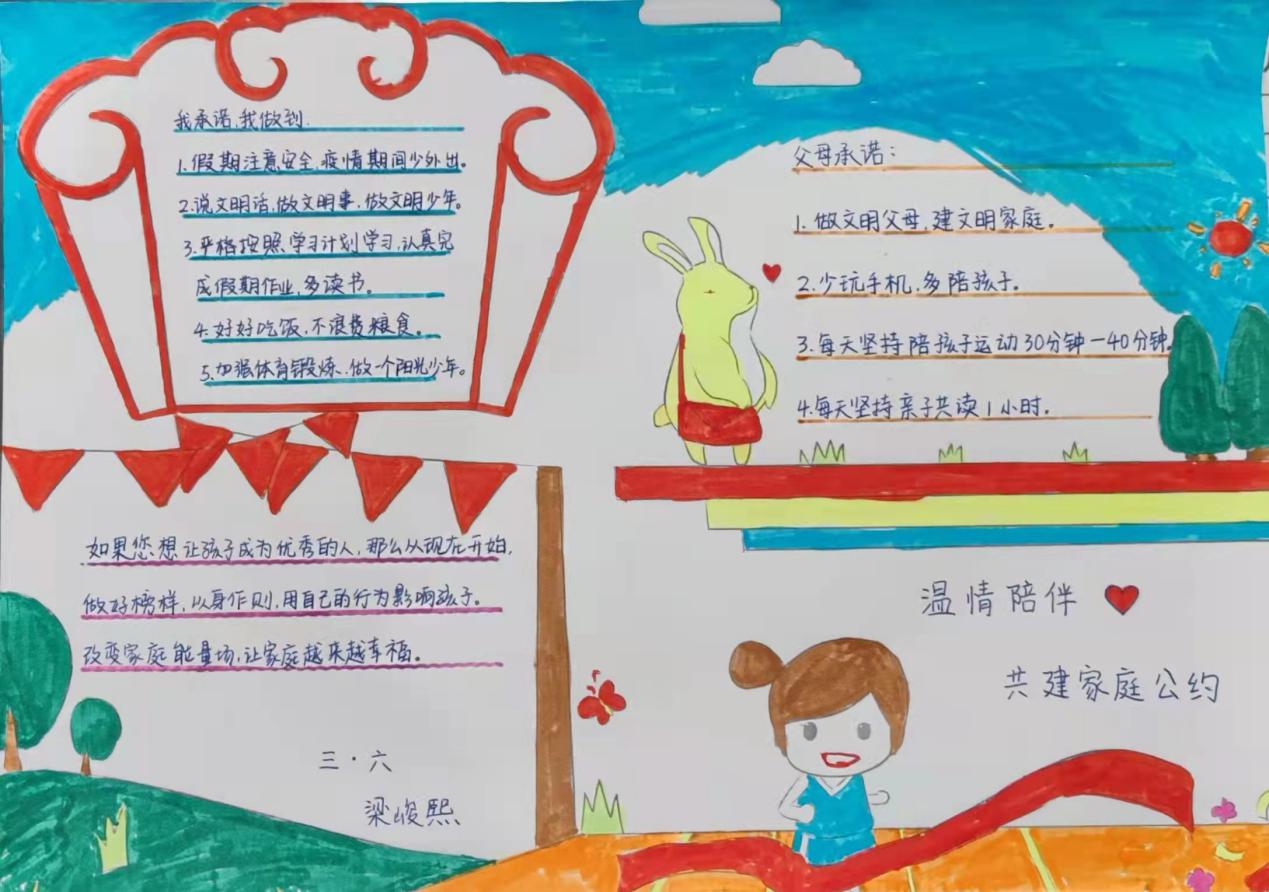 我承诺,我做到.
1.假期注意安全,疫情期间少外出。
2.说文明话,做文明事,做文明少年。
3.严格按照学习计划学习,认真完
成假期作业,多读书。
4.好好吃饭,不浪费粮食。
5.加强体育锻炼,做一个阳光少年。
父母承诺:
1.做文明父母,建文明家庭。
2.少玩手机,多陪孩子。
3.每天坚持陪孩子运动30分钟一40分钟。
4.每天坚持亲子共读1小时.
如果您想让孩子成为优秀的人,那么从现在开始,
做好榜样,以身作则,用自己的行为影响孩子。
改变家庭能量场,让家庭越来越幸福。
三·六
梁峻熙
温情陪伴
共建家庭公约